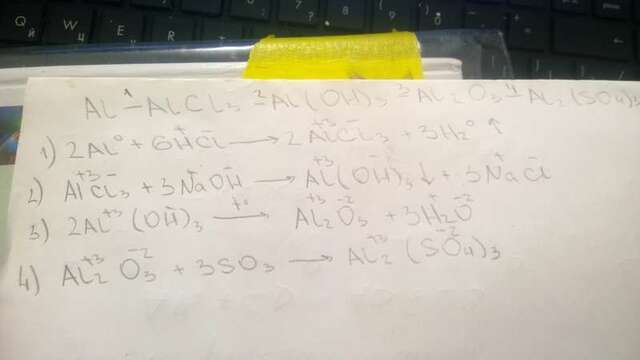 Q W E R
Й
AL ¹– ALCL₃ ²– AL(OH)₃ ³– AL₂O₃ ⁴– AL₂(SO₄)₃
1) 2AL⁰ + 6H⁺Cl⁻ ⟶ 2Al⁺³Cl⁻₃ + 3H₂⁰ ↑
2) Al⁺³Cl⁻₃ + 3Na⁺OH⁻ ⟶ AL⁺³(OH)⁻₃ ↓ + 3Na⁺Cl⁻
3) 2AL⁺³(OH)⁻₃ ⟶ t° AL₂⁺³O₃⁻² + 3H₂⁺O⁻²
4) AL₂⁺³O₃⁻² + 3SO₃ ⟶ AL₂⁺³(SO₄)₃⁻²